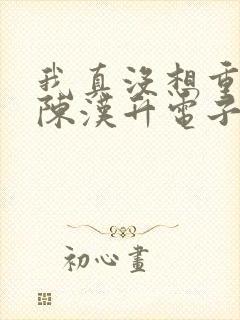 我真沒想重
陳漢升電子
初心畫